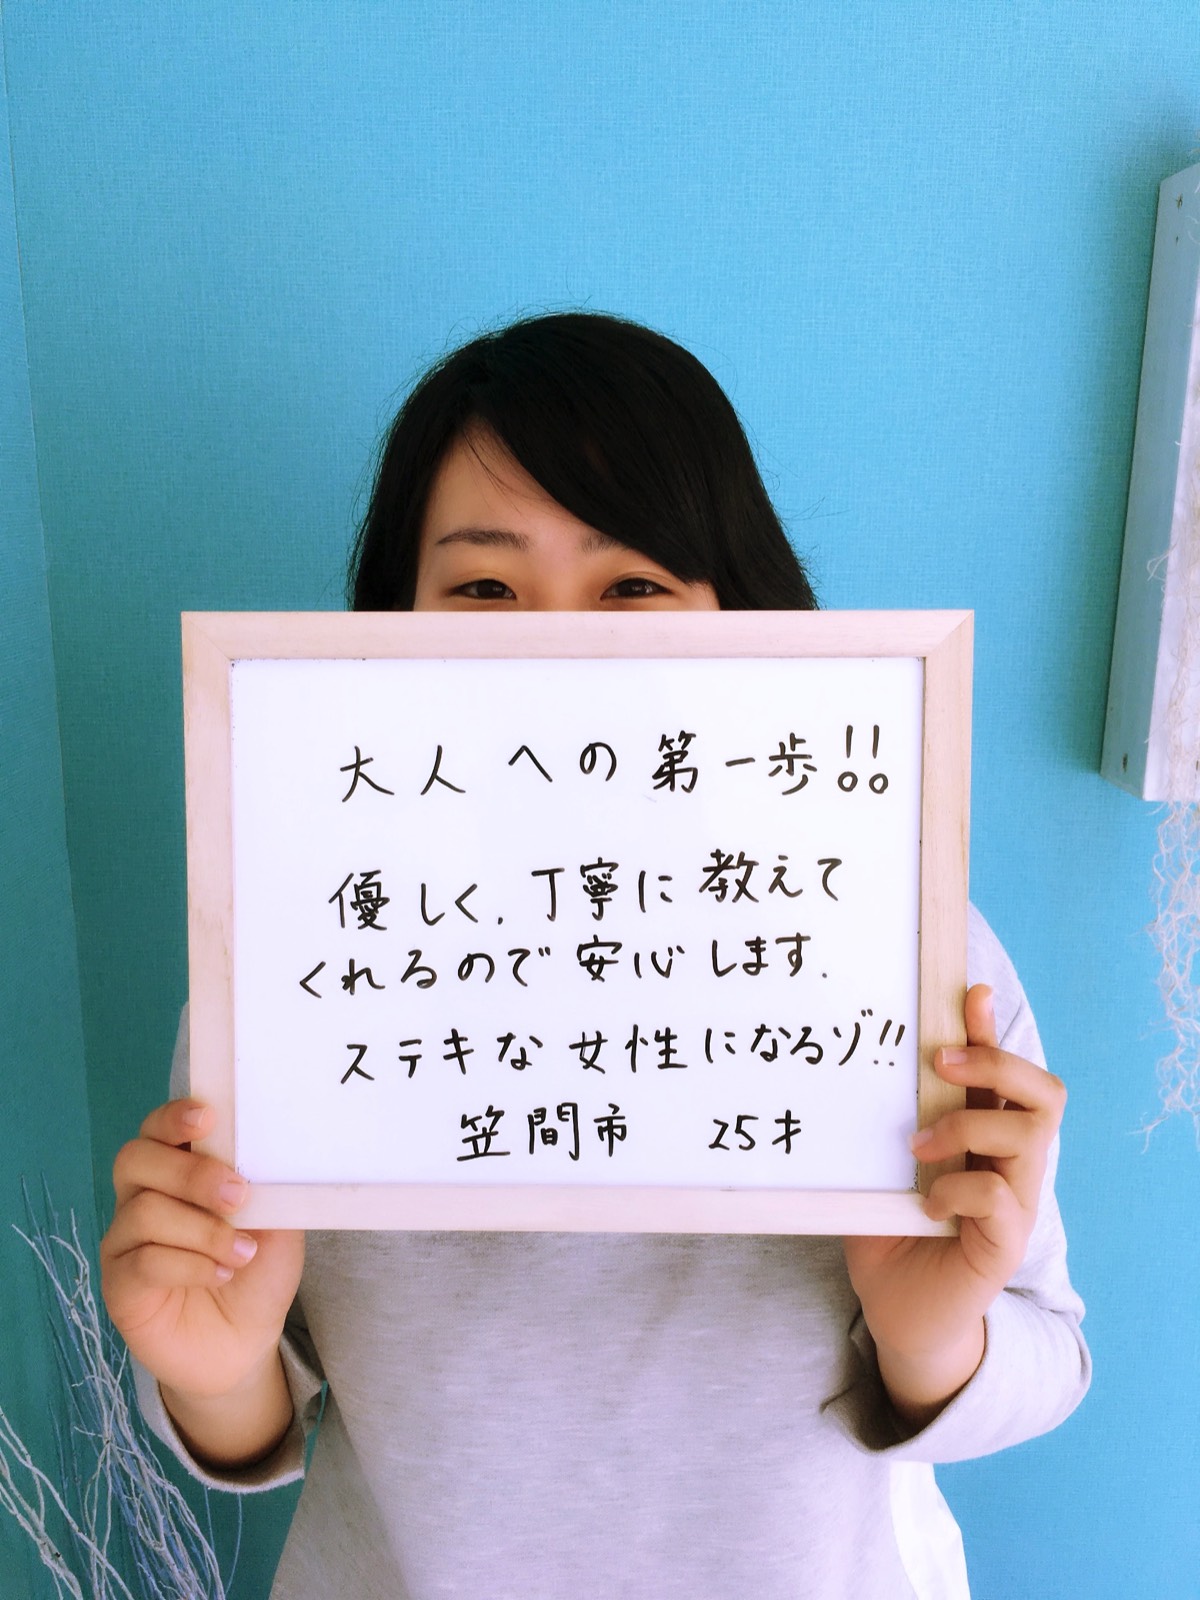 大人への第一歩!!
優しく、丁寧に教えて
くれるので安心します。
ステキな女性になるゾ!!
笠間市 25才